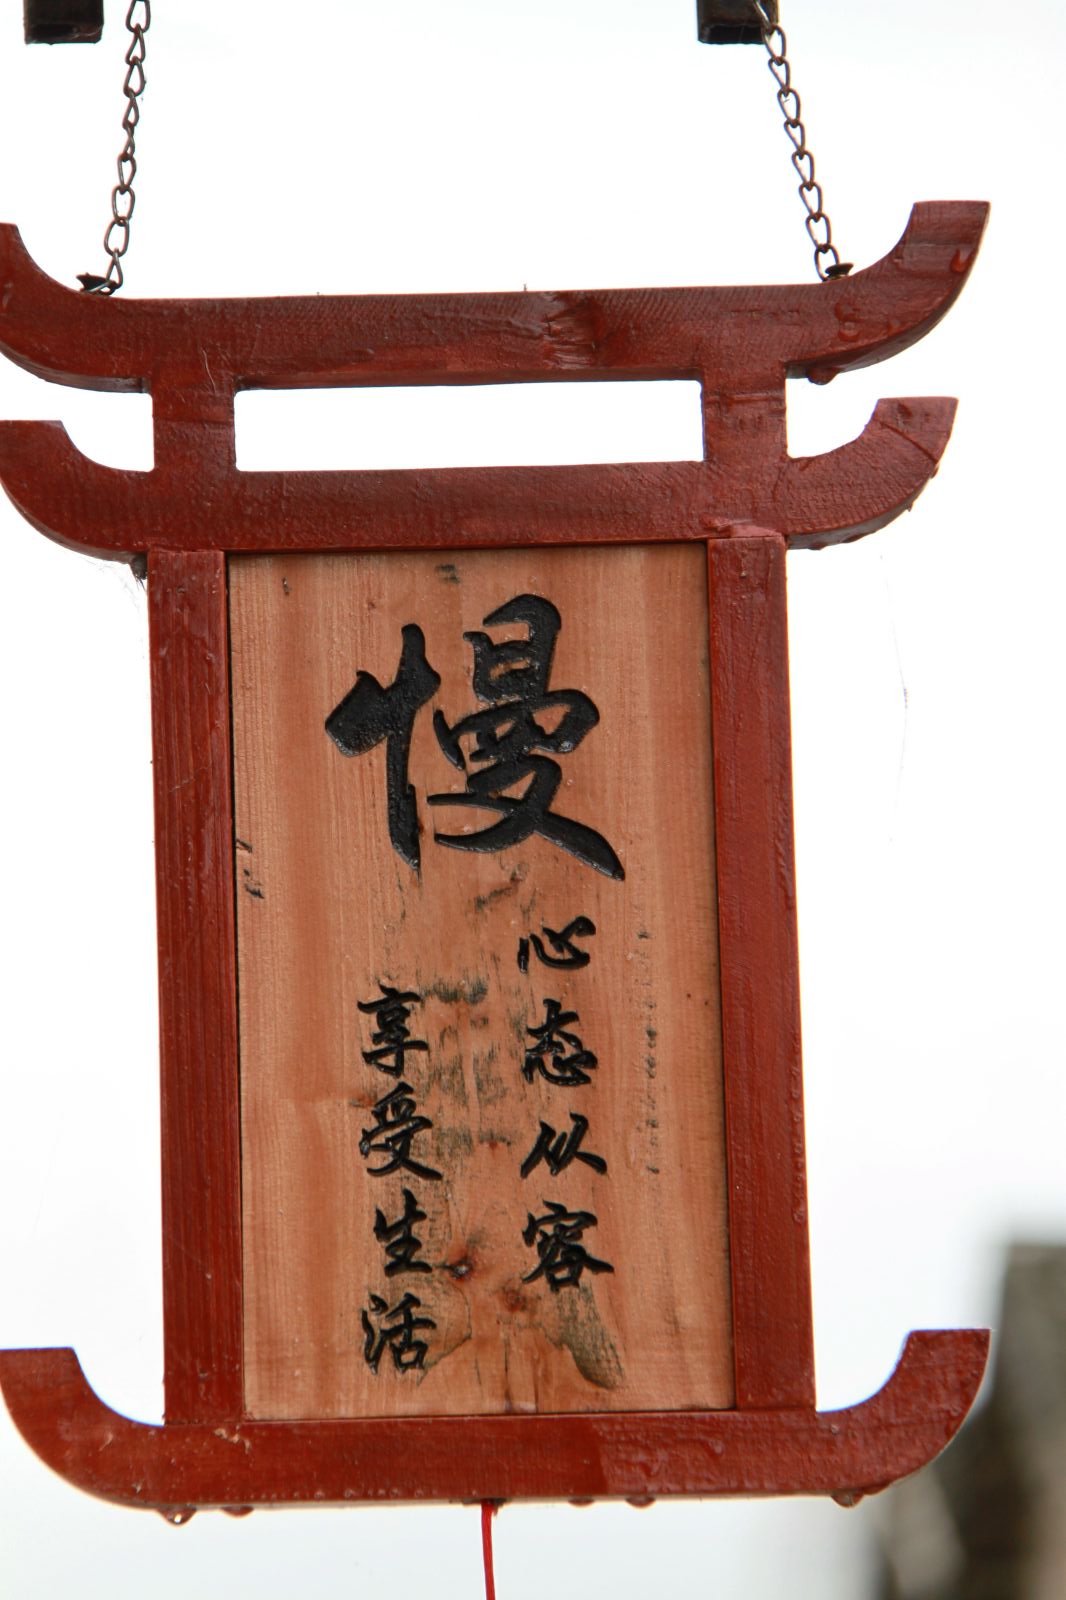 慢
心态从容
享受生活